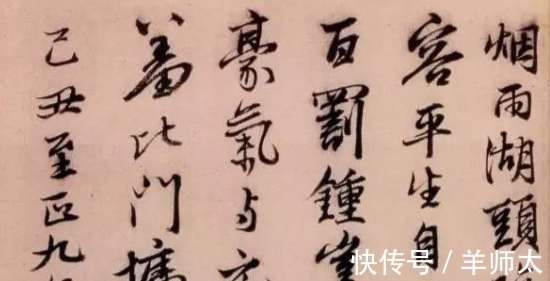 烟雨湖頭
容平生自
百罰鍾
豪氣与
羞比門牆
己丑至正九
快传号/羊师太